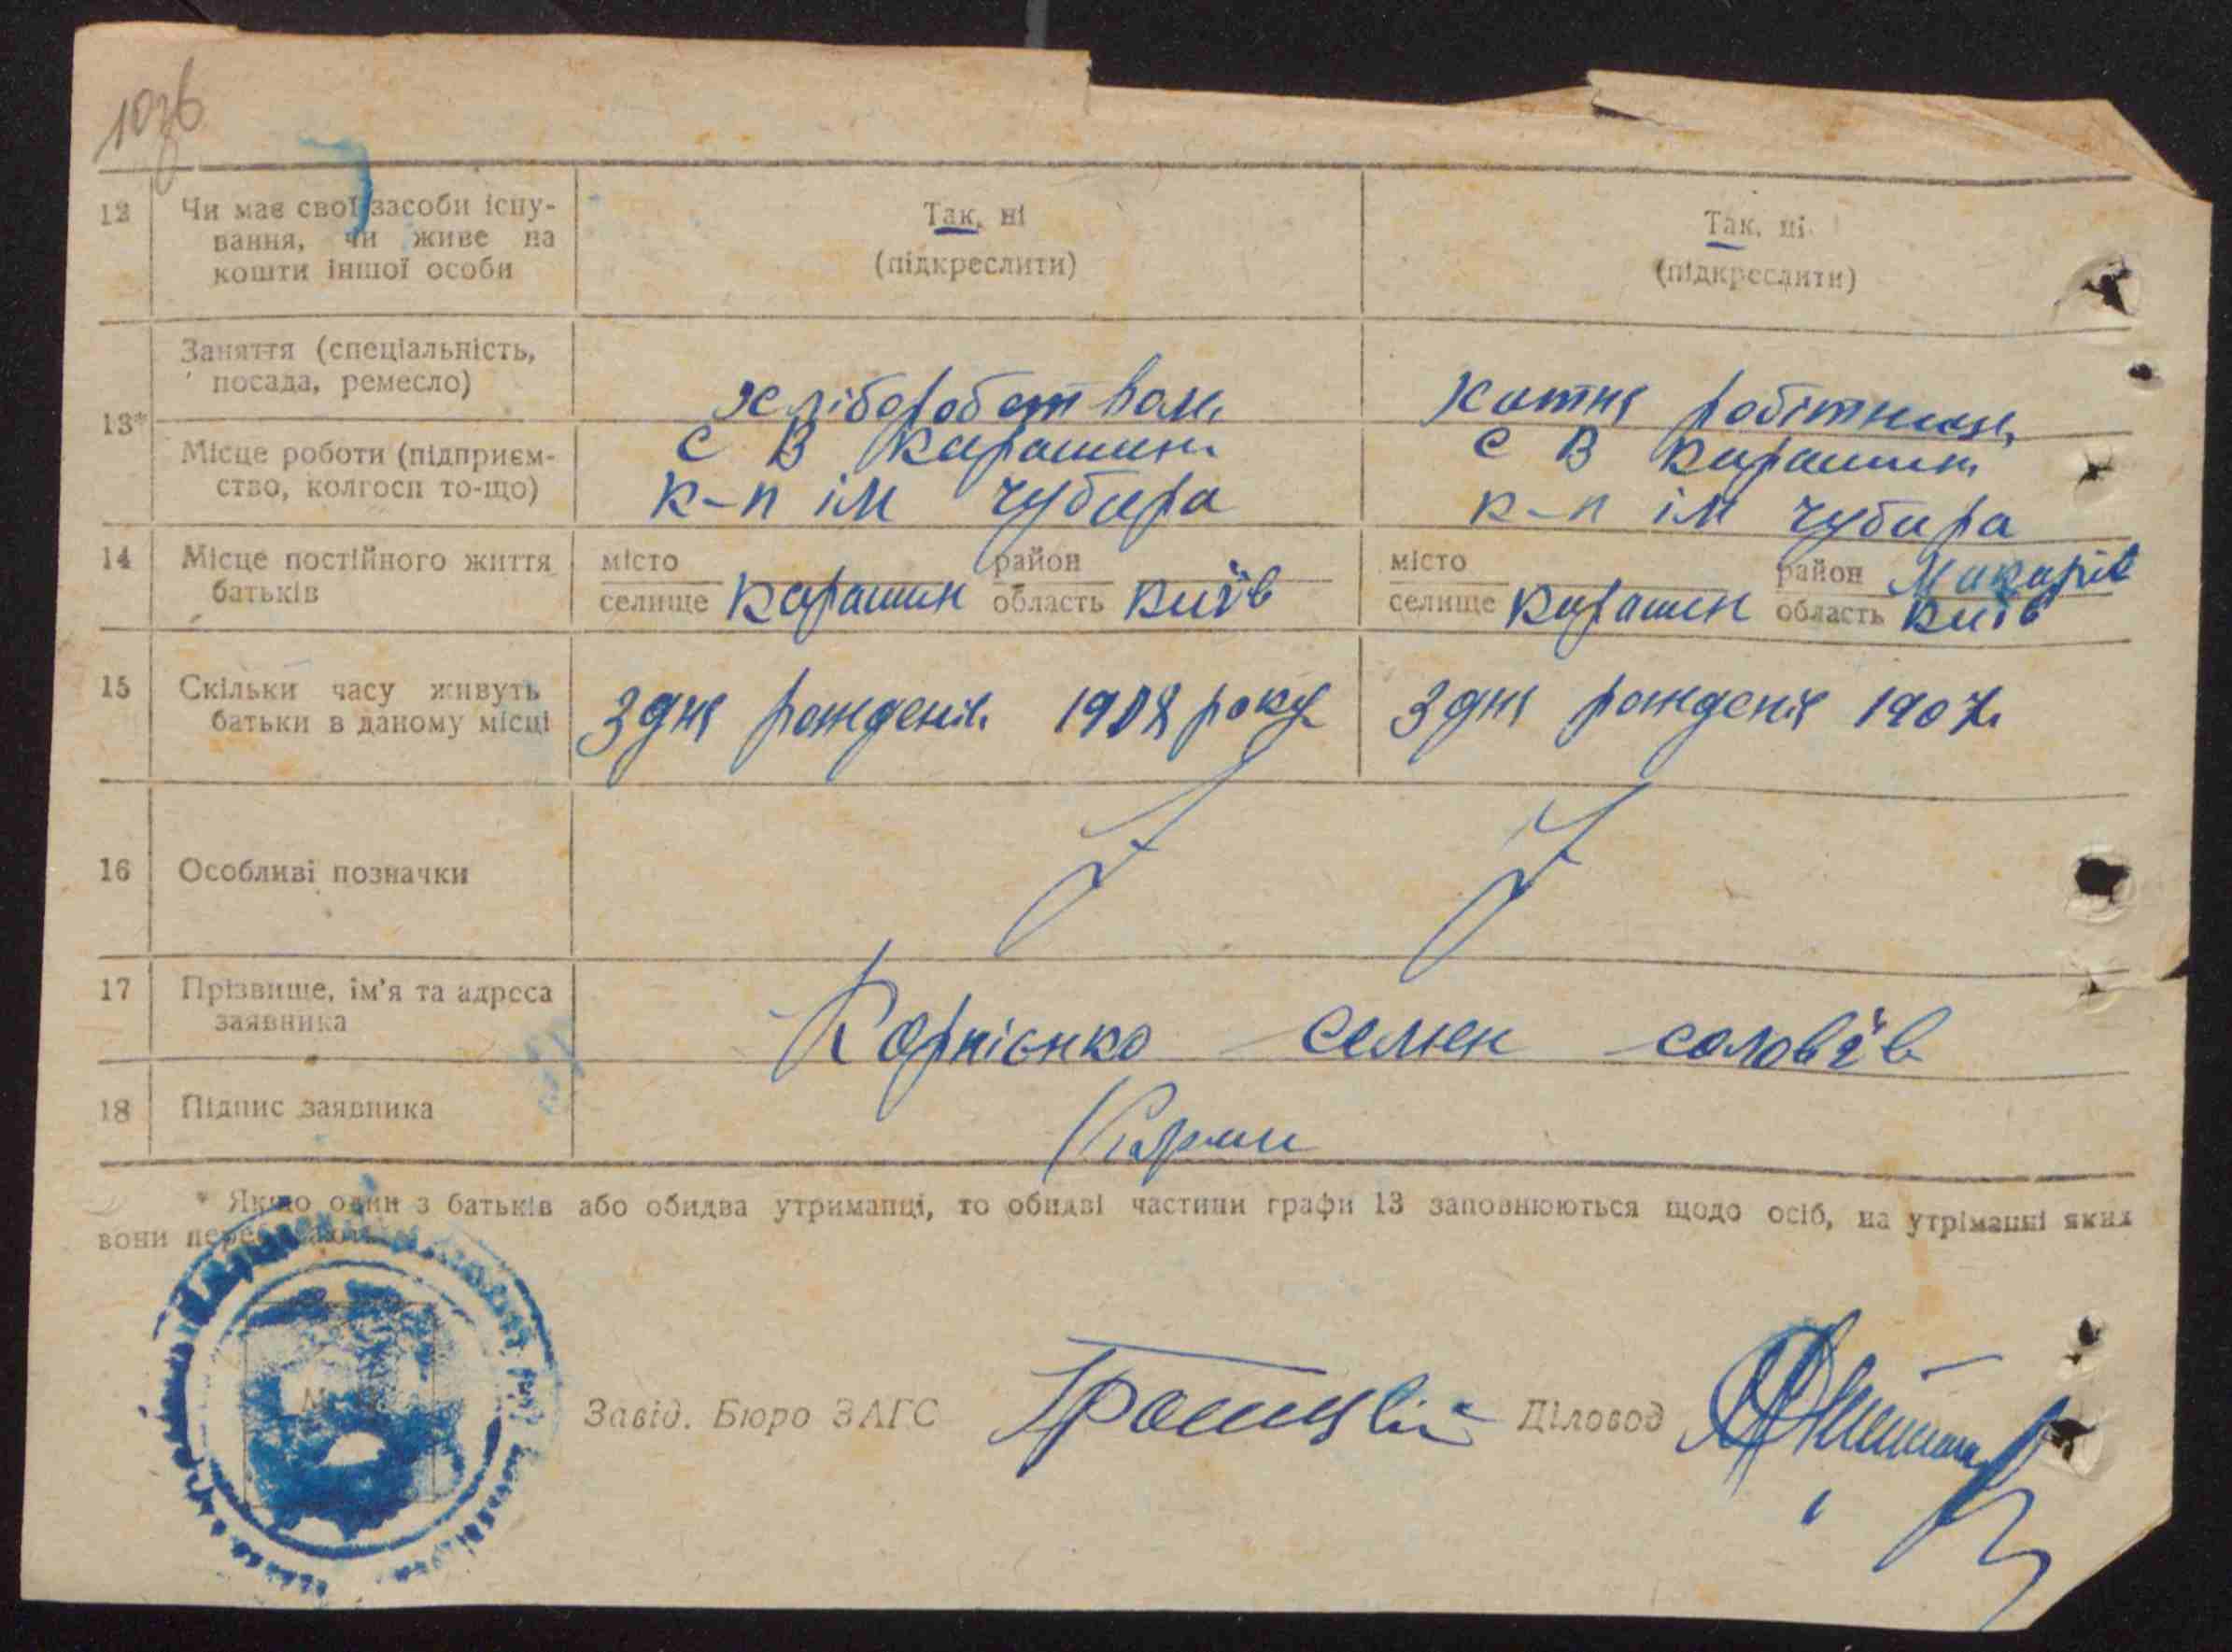 1076
12 Чи має свої засоби існу- Так, ні Так, ні
вання, чи живе на (підкреслити) (підкреслити)
кошти іншої особи
13* Заняття (спеціальність,
посада, ремесло) хліборобством хатня робітниця
Місце роботи (підприєм- с В Карашин с В Карашин
ство, колгосп то-що) к-п ім Чубаря к-п ім Чубаря
14 Місце постійного життя місто район місто район Макарів
батьків селище Карашин область Київ селище Карашин область Київ
15 Скільки часу живуть
батьки в даному місці З дня рожденія 1908 року З дня рожденія 1907
16 Особливі позначки
17 Прізвище, ім'я та адреса
заявника Корнієнко Семен
18 Підпис заявника
* Якщо один з батьків або обидва утриманці, то обидві частини графи 13 заповнюються щодо осіб, на утріманні яких
вони
Завід. Бюро ЗАГС Діловод